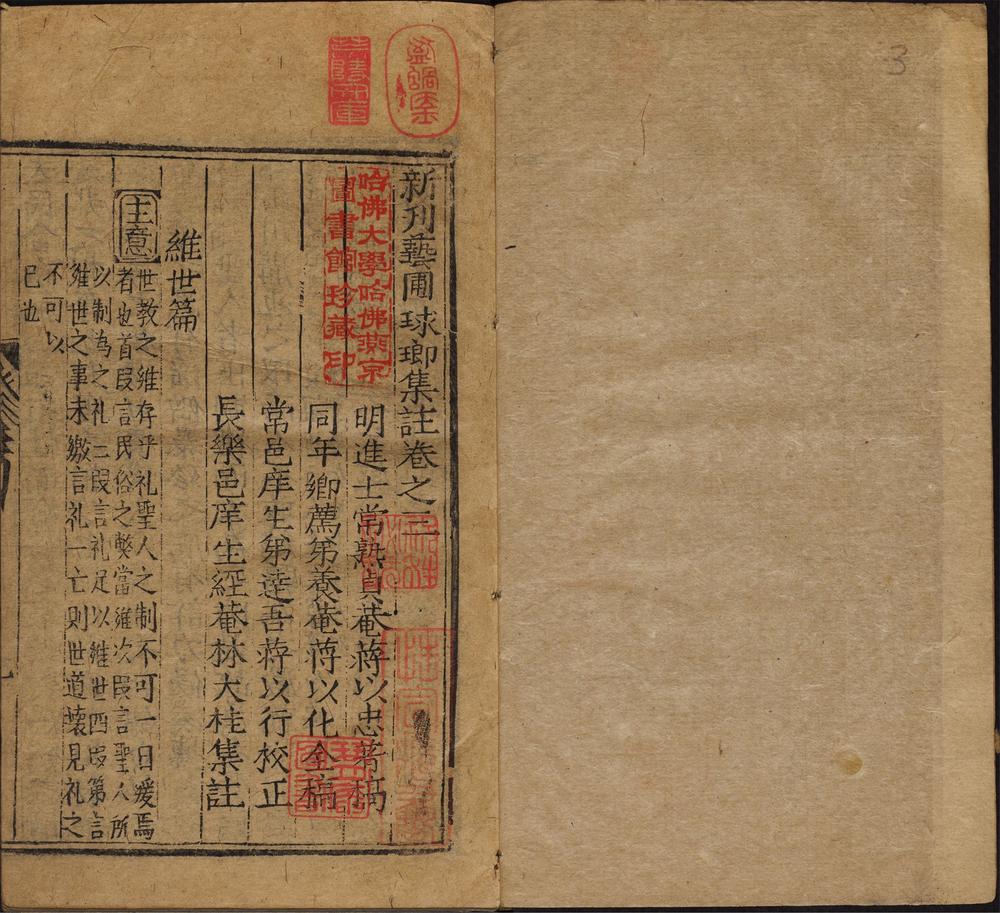 3
新刋藝圃球瑯集註卷之三
明進士常熟貞菴蔣以忠著稿
同年鄉薦弟養菴蔣以化仝稿
常邑庠生弟逵吾蔣以行校正
長樂邑庠生經菴林大桂集註
維世篇
主意
世教之維存乎礼聖人之制不可一日廢焉
者也首叚言民俗之獘當維次叚言聖人所
以制為之礼二叚言礼足以維世四叚第言
維世之事未繳言礼一亡則世道壞見礼之
不可以
已也
哈佛大學哈佛燕京
圖書館珍藏印